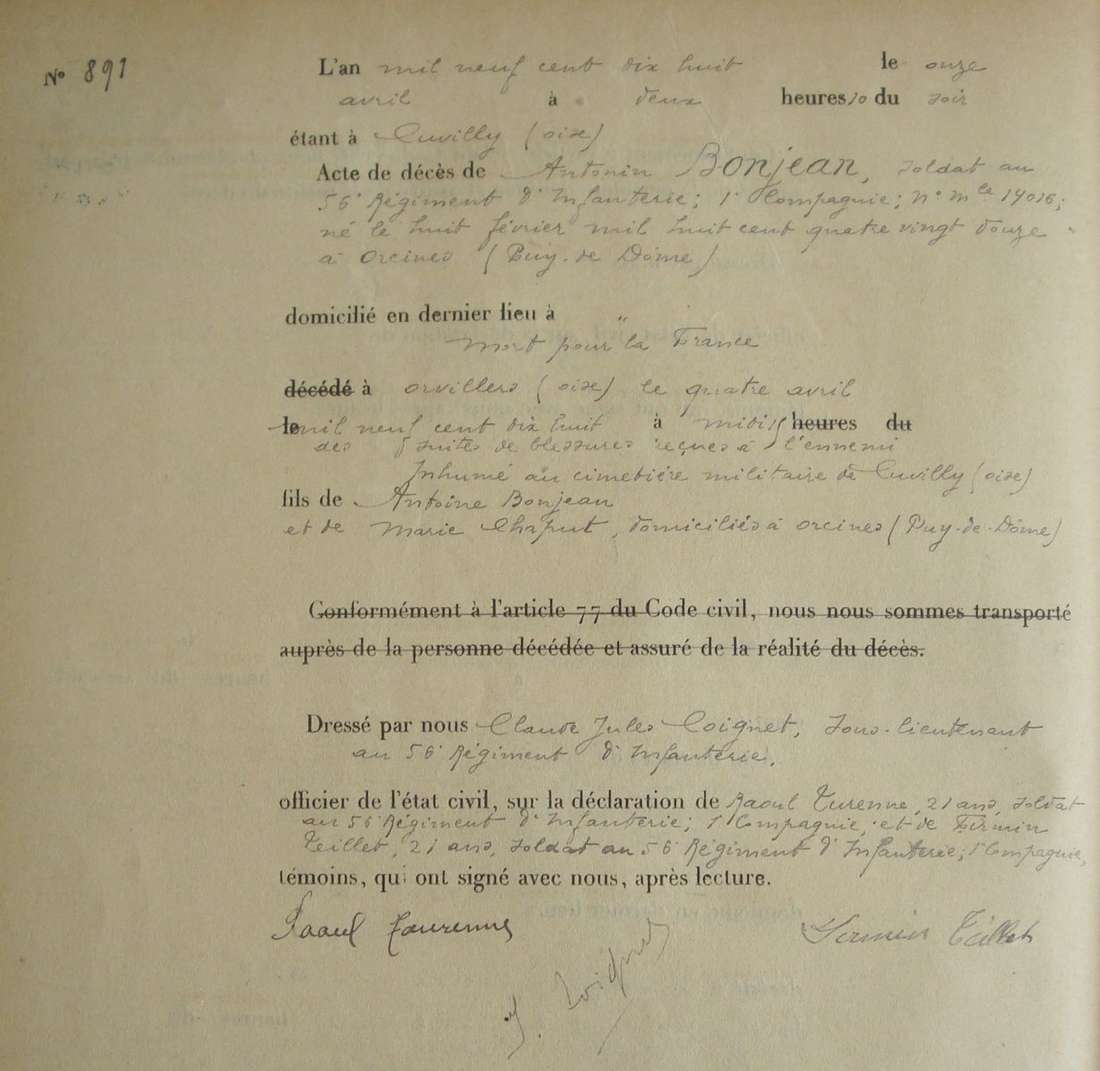 N° 891
L'an mil neuf cent dix huit le onze
avril à deux heures 10 du soir
étant à Cuvilly (oise)
Acte de décès de Antonin Bonjean, soldat au
56e Régiment d'Infanterie; 1e Compagnie; n° mle 14016;
né le huit février mil huit cent quatre vingt douze
à Orcines (Puy-de-Dôme)
domicilié en dernier lieu à "
Mort pour la France
décédé à orvillers (oise) le quatre avril
le mil neuf cent dix huit à midi heures du
des suites de blessures reçues à l'ennemi
Inhumé au cimetière militaire de Cuvilly (oise)
fils de Antoine Bonjean
et de Marie Chaput, domiciliés à Orcines (Puy-de-Dôme)
Conformément à l'article 77 du Code civil, nous nous sommes transporté
auprès de la personne décédée et assuré de la réalité du décès.
Dressé par nous Claude Jules Coignet, Sous-lieutenant
au 56e Régiment d'Infanterie,
officier de l'état civil, sur la déclaration de Raoul Turenne, 21 ans, soldat
au 56e Régiment d'Infanterie; 1e Compagnie, et de Firmin
Teillet, 21 ans, soldat au 56e Régiment d'Infanterie; 1e Compagnie,
témoins, qui ont signé avec nous, après lecture.
Raoul Turenne Firmin Teillet
J. Coignet